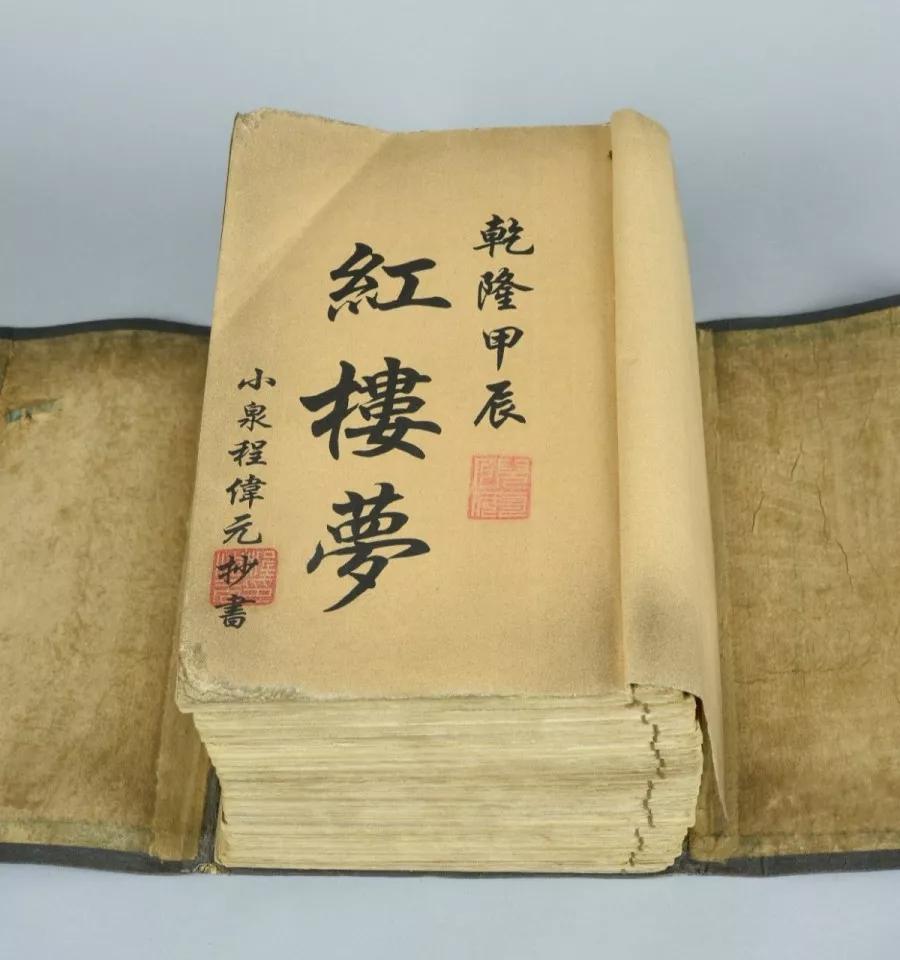 乾隆甲辰
紅樓夢
小泉程偉元抄書